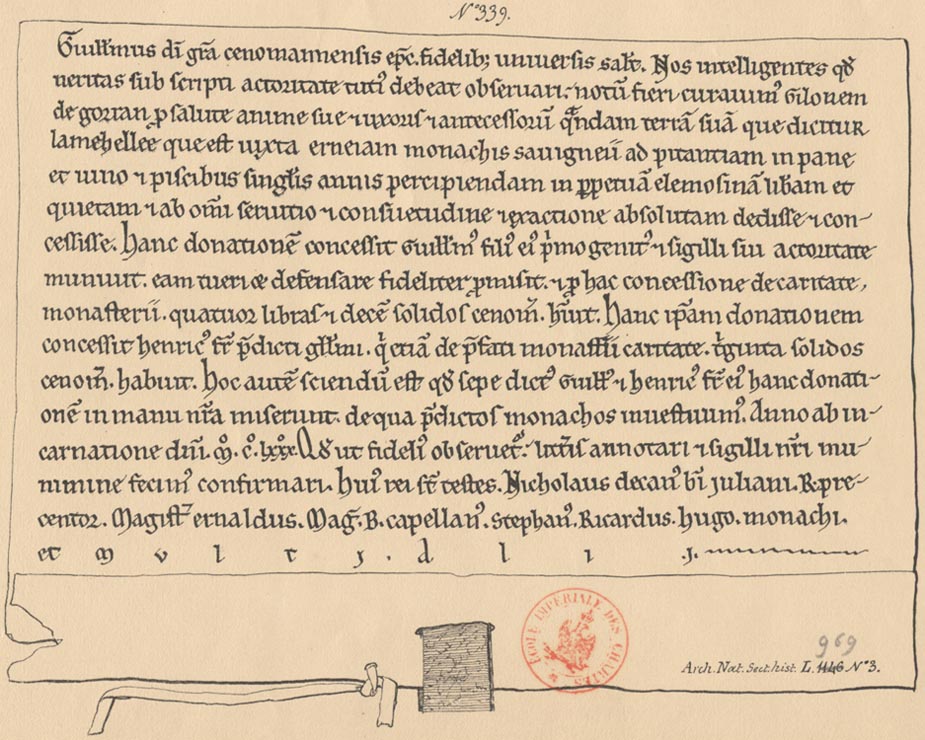 Nº 339.
Guill̄mus dī grā cenomannensis ep̄c. fidelib; universis salt̄. Nos intelligentes qđ
veritas sub scripti actoritate tutiꝰ debeat observari. notū fieri curavimꝰ Gilonem
de gorran ꝓ salute anime sue ⁊ uxoris ⁊ antecessorū q̄ndam terrā suā que dicitur
lamehellee que est iuxta erneiam monachis savigneii ad pitantiam in pane
et vino ⁊ piscibus singlis annis percipiendam in ꝑpetuā elemosinā lib̄am et
quietam ⁊ ab om̄i servitio ⁊ consuetudine ⁊ exactione absolutam dedisse ⁊ con-
cessisse. Hanc donationē concessit Guill̄mꝰ filiꝰ eiꝰ p̄mogenitꝰ ⁊ sigilli sui actoritate
munivit. eam tueri ⁊ defensare fideliter ꝓmisit. ⁊ ꝓ hac concessione de caritate,
monasterii. quatuor libras ⁊ decē solidos cenom̄. h̄uit. Hanc ip̄am donationem
concessit henricꝰ fr̄ p̄dicti Gll̄mi. q̇ etiā de p̄fati monast̄ii caritate. t̄ginta solidos
cenom̄. habuit. Hoc autē sciendū est qđ sepe dictꝰ Guill̄ꝰ ⁊ henricꝰ fr̄ eiꝰ hanc donati-
onē in manu nr̄a miserunt. de qua p̄dictos monachos investivimꝰ. Anno ab in-
carnatione dn̄i. ꝳ. c̊. lxxx. Qđ ut fideliꝰ observet᷑. litt̄is annotari ⁊ sigilli nr̄i mu-
nimine fecimꝰ confirmari. Huiꝰ rei st̄ testes. Nicholaus decanꝰ bī juliani. R. pre-
centor. Magist̄ ernaldus. Mag̃. B. capellanꝰ. Stephanꝰ. Ricardus. hugo. monachi.
et m v l t j. d l i j.
ÉCOLE IMPERIALE DES CHARTES
969
Arch. Nat. Sect. hist. L. 1146 Nº 3.